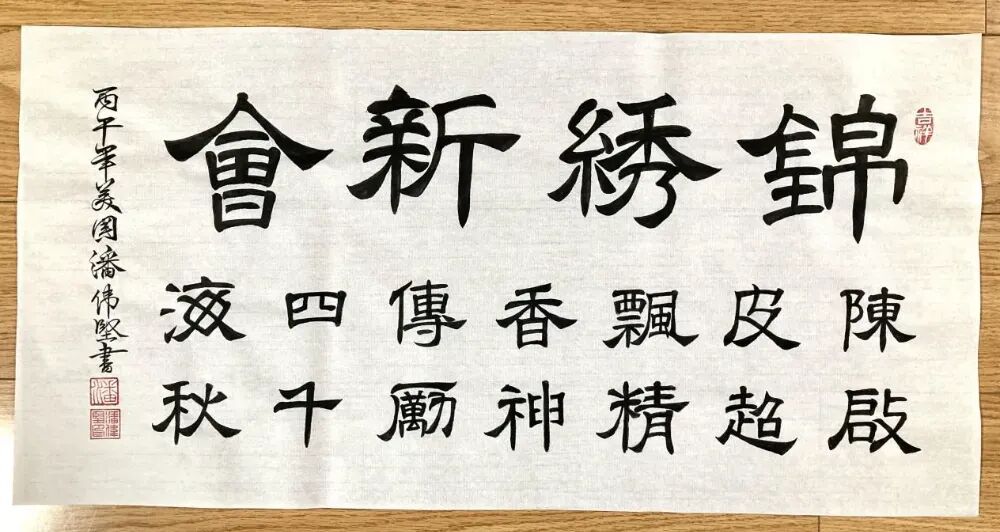 錦綉新會
陳皮飄香傳四海
啟超精神勵千秋
丙午年美国潘伟堅書
吉祥
潘